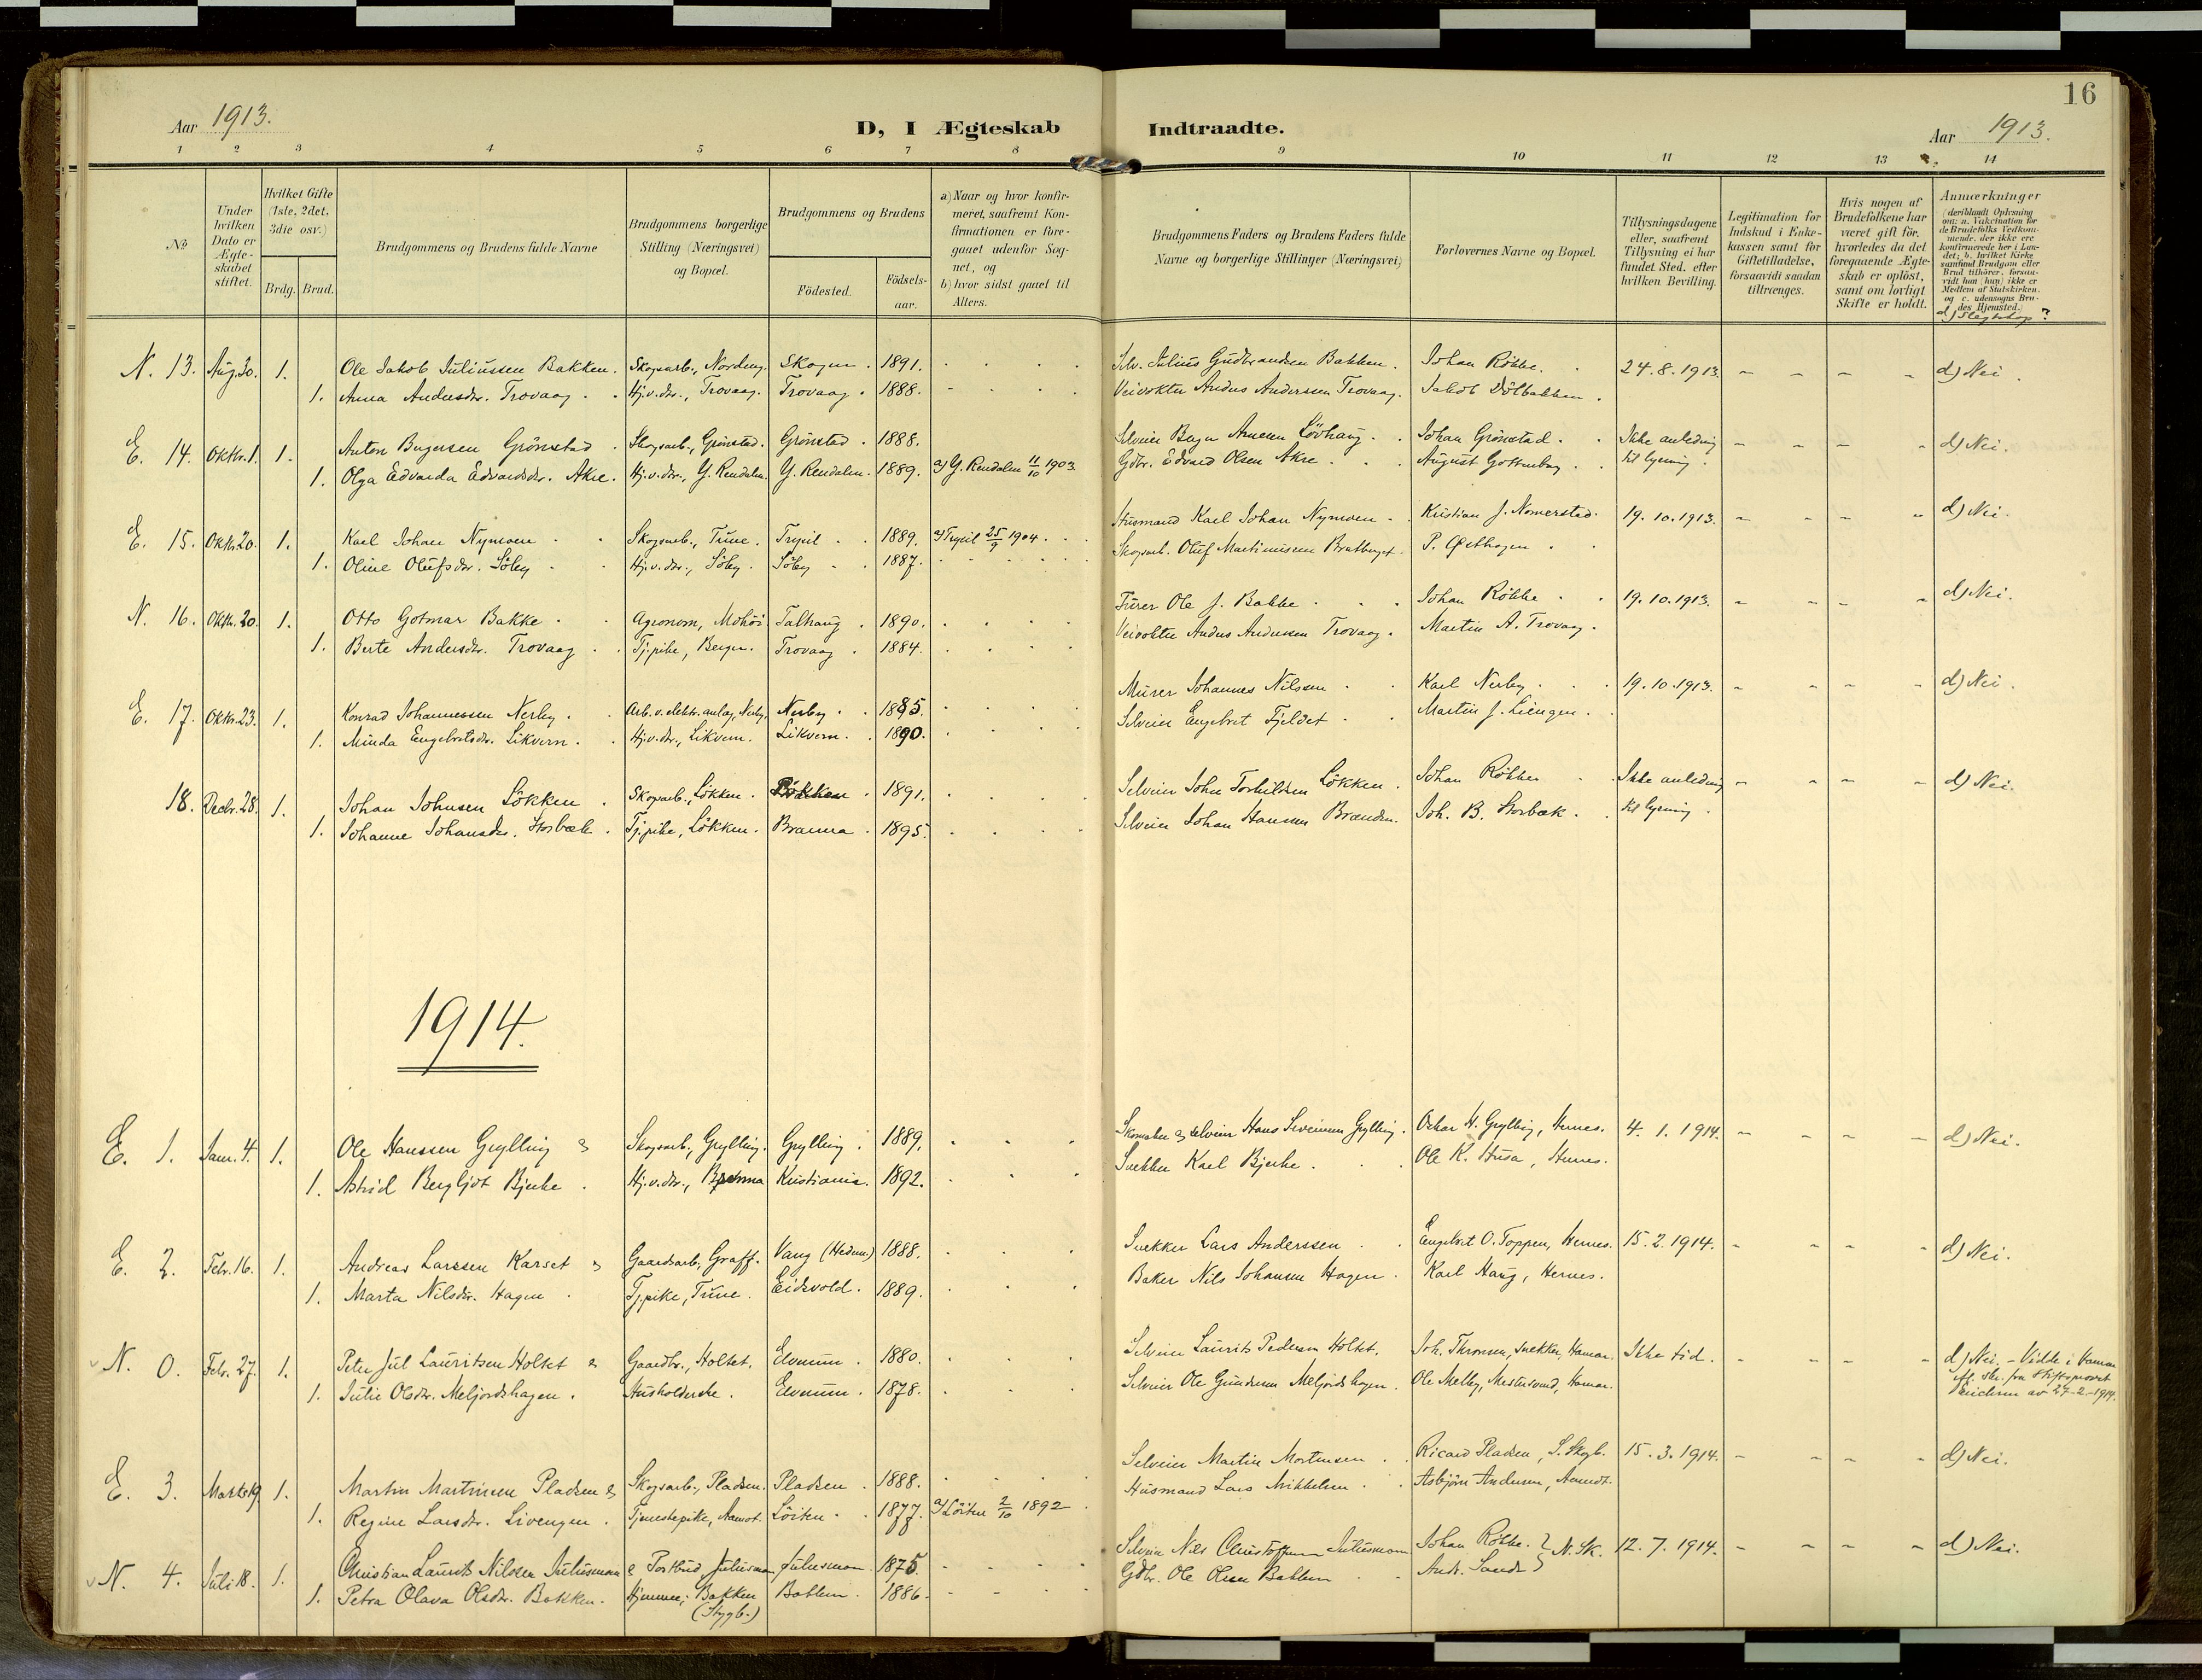 16
Aar 1913.
D, I Ægteskab Indtraadte.
Aar 1913.
1 2 3 4 5 6 7 8 9 10 11 12 13 14
No
Under hvilken Dato er Ægteskabet stiftet.
Hvilket Gifte (1ste, 2det, 3die osv.)
Brdg. Brud.
Brudgommens og Brudens fulde Navne
Brudgommens borgerlige Stilling (Næringsvei) og Bopæl.
Brudgommens og Brudens
Födested. Födsels-aar.
a) Naar og hvor konfir-
meret, saafremt Kon-
firmationen er fore-
gaaet udenfor Sog-
net, og
b) hvor sidst gaaet til
Alters.
Brudgommens Faders og Brudens Faders fulde
Navne og borgerlige Stillinger (Næringsvei)
Forlovernes Navne og Bopæl.
Tillysningsdagene
eller, saafremt
Tillysning ei har
fundet Sted, efter
hvilken Bevilling.
Legitimation for
Indskud i Enke-
kassen samt for
Giftetilladelse,
forsaavidt saadan
tiltrænges.
Hvis nogen af
Brudefolkene har
været gift för,
hvorledes da det
foregaaende Ægte-
skab er oplöst,
samt om lovligt
Skifte er holdt.
Anmærkninger
(deriblandt Oplysning
om: a. Vakcination for
de Brudefolks Vedkom-
mende, der ikke ere
konfirmerede her i Lan-
det; b. hvilket Kirke-
samfund Brudgom eller
Brud tilhörer, forsaa-
vidt han (hun) ikke er
Medlem af Statskirken,
og c. udensogns Bru-
des Hjemsted.)
d) Slegtskap?
N. 13. Aug. 30. 1. Ole Jakob Juliussen Bakken. Skogsarb., Nordeng. Skogen 1891. Selv. Julius Gudbrandsen Bakken. Johan Röbke. 24.8.1913. d) Nei.
1. Anna Andersdr. Trovaag. Hj.v.dr., Trovaag. Trovaag. 1888. Veivokter Anders Anderssen Trovaag. Jakob Dölbakken.
E. 14. Oktbr. 1. 1. Anton Bergersen Grönstad. Skogsarb., Grönstad. Grönstad. 1888. Selveier Berger Arnesen Lövhaug. Johan Grönstad. Ikke anledning d) Nei.
1. Olga Edvarda Edvardsdr. Akre. Hj.v.dr., Y. Rendalen. Y. Rendalen. 1889. a) Y. Rendalen 11/10 1903. Gdbr. Edvard Olsen Akre. August Gottenborg. til lysning.
E. 15. Oktbr. 20. 1. Karl Johan Nymoen Skogsarb., Tune. Trysil 1889. a) Trysil 25/9 1904. Husmand Karl Johan Nymoen. Kristian J. Nomerstad. 19.10.1913. d) Nei.
1. Oline Olufsdr. Söby Hj.v.dr., Söby. Söby 1887. Skogsarb. Oluf Martinussen Bratberget. P. Østhagen
N. 16. Oktbr. 20. 1. Otto Gotmar Bakke Agronom, Mohöi Talhaug. 1890. Furer Ole J. Bakke Johan Röbke 19.10.1913. d) Nei.
1. Berte Andersdr. Trovaag Tj.pike, Bergen. Trovaag. 1884. Veivokter Anders Anderssen Trovaag. Martin A. Trovaag.
E. 17. Oktbr. 23. 1. Konrad Johannessen Nerby. Arb. v. elektr. anlæg, Nerby. Nerby 1885. Murer Johannes Nilssen Karl Nerby 19.10.1913. d) Nei.
1. Minda Engebretsdr. Likvern. Hj.v.dr., Likvern. Likvern. 1890. Selveier Engebret Fjeldet Martin J. Liengen.
18. Decbr. 28. 1. Johan Johnsen Lökken Skogsarb., Lökken. Lökken 1891. Selveier John Torkildsen Lökken. Johan Röbke Ikke anledning d) Nei.
1. Johanne Johansdr. Storbæk Tj.pike, Lökken. Brænna 1895. Selveier Johan Hansen Brænden. Joh. B. Storbæk. til lysning.
1914.
E. 1. Jan. 4. 1. Ole Hanssen Grylling & Skogsarb., Grylling. Grylling. 1889. Skomaker & selveier Hans Sveinsen Grylling. Oskar H. Grylling, Hernes. 4.1.1914. d) Nei.
1. Astrid Bergljot Bjerke Hj.v.dr., Brænna Kristiania. 1892. Snekker Karl Bjerke. Ole K. Husa, Hernes.
E. 2. Febr. 16. 1. Andreas Larssen Karset & Gaardsarb., Graff. Vang (Hedem.) 1888. Snekker Lars Anderssen Engebret O. Toppen, Hernes. 15.2.1914. d) Nei.
1. Marta Nilsdr. Hagen Tj.pike, Tune. Eidsvold. 1889. Baker Nils Johansen Hagen. Karl Haug, Hernes.
N. 0. Febr. 27. 1. Peter Jul Lauritsen Holtet & Gaardbr., Holtet. Elverum. 1880. Selveier Laurits Pedersen Holtet. Joh. Thronsen, snekker, Hamar. Ikke tid. d) Nei. - Viede i Hamar
1. Julie Olsdr. Meljordshagen. Husholderske. Elverum. 1878. Selveier Ole Gundersen Meljordshagen. Ole Melby, Mestersvend, Hamar. ifl. skr. fra Stiftsprovst av 27-2-1914.
E. 3. Marts 19 1. Martin Martinsen Pladsen & Skogsarb., Pladsen. Pladsen. 1888. Selveier Martin Mortensen Ricard Pladsen, S. Skogb. 15.3.1914. d) Nei.
1. Regine Larsdr. Livengen. Tjenestepike, Aamot. Löiten. 1877. a) Löiten 2/10 1892 Husmand Lars Mikkelsen Asbjörn Andersen, Aamot.
N. 4. Juli 18. 1. Christian Laurits Nilssen Julusmoen & Postbud, Julusmoen Julusmoen. 1875. Selveier Nils Christoffersen Julusmoen Johan Röbke. } N. Sk. 12.7.1914. d) Nei.
1. Petra Olava Olsdr. Bakken. Hjemme, Bakken Bakken. 1886. Gdbr. Ole Olsen Bakken Andr. Sand
(Stygb.)